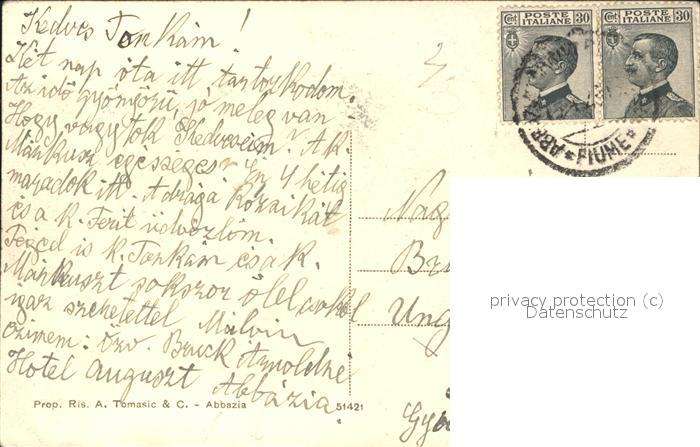 Kedves Tonkám!
Két nap óta itt tartozkodom.
Az idő gyönyörű, jó meleg van
Hogy vagytok Kedveseim? A k.
Márkusz egészséges? Én 4 hétig
maradok itt. A drága Rózsikát
és a k. Ferit üdvözlöm.
Téged is k. Tonkám és a k.
Márkuszt sokszor ölel
igaz szeretettel Malvin
Czimem: Özv. Bruck Arnoldné
Hotel auguszt Abbázia.
Prop. Ris. A. Tomasic & C. - Abbazia
51421
Cent. POSTE ITALIANE 30
Cent. POSTE ITALIANE 30
ABBAZIA * FIUME *
Nag
Bru
Ung
Gyó
privacy protection (c)
Datenschutz